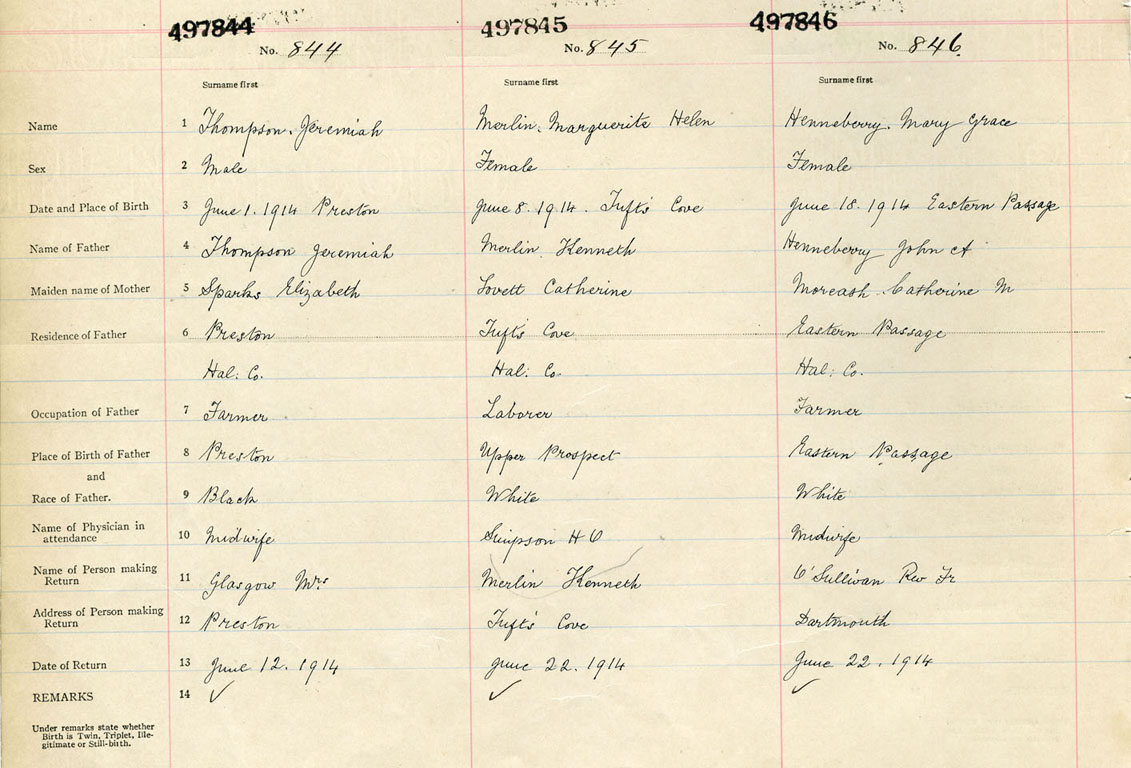 497844 497845 497846
No. 844 No. 845 No. 846.
Surname first Surname first Surname first
Name 1 Thompson. Jeremiah Merlin. Marguerite Helen Henneberry. Mary Grace
Sex 2 Male Female Female
Date and Place of Birth 3 June 1. 1914 Preston June 8. 1914. Tuft's Cove June 18. 1914 Eastern Passage
Name of Father 4 Thompson Jeremiah Merlin. Kenneth Henneberry John A
Maiden name of Mother 5 Sparks Elizabeth Lovett Catherine Moreash. Catherine M
Residence of Father 6 Preston Tuft's Cove Eastern Passage
Hal: Co. Hal: Co. Hal: Co.
Occupation of Father 7 Farmer Laborer Farmer
Place of Birth of Father 8 Preston Upper Prospect Eastern Passage
and
Race of Father. 9 Black White White
Name of Physician in
attendance 10 Midwife Simpson H O Midwife
Name of Person making
Return 11 Glasgow Mrs Merlin Kenneth O'Sullivan Rev Fr
Address of Person making
Return 12 Preston Tuft's Cove Dartmouth
Date of Return 13 June 12. 1914 June 22. 1914 June 22. 1914
REMARKS 14 ✓ ✓ ✓
Under remarks state whether
Birth is Twin, Triplet, Ille-
gitimate or Still-birth.